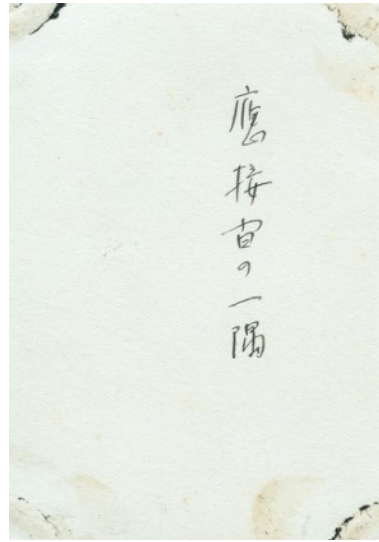 應接間の一隅